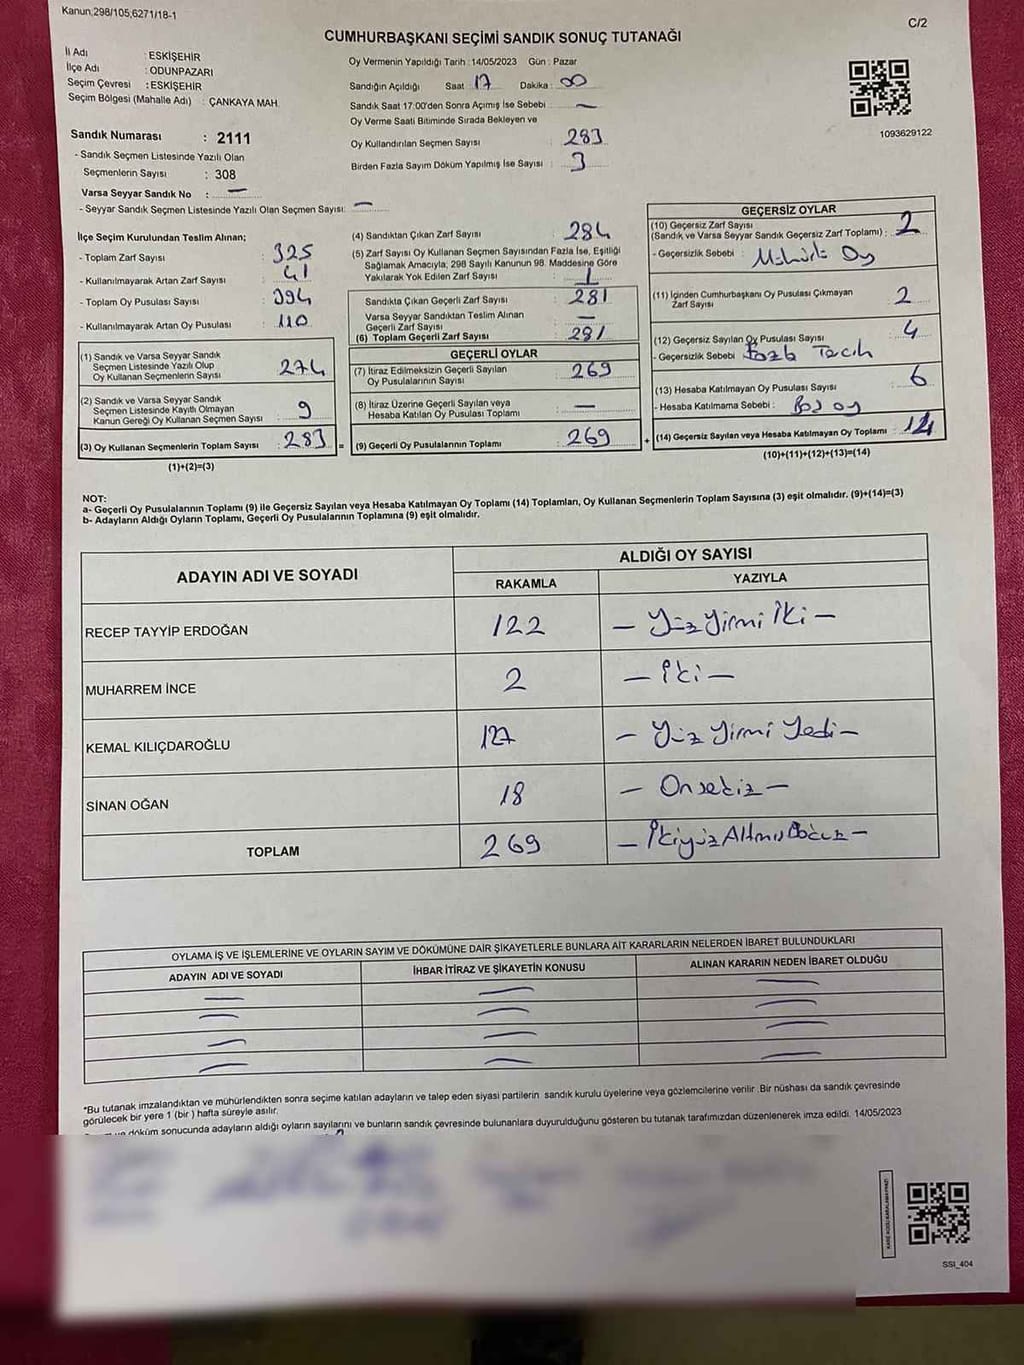 Kanun,298/105,6271/18-1
C/2
CUMHURBAŞKANI SEÇİMİ SANDIK SONUÇ TUTANAĞI
İl Adı : ESKİŞEHİR
İlçe Adı : ODUNPAZARI
Seçim Çevresi : ESKİŞEHİR
Seçim Bölgesi (Mahalle Adı) : ÇANKAYA MAH.
Sandık Numarası : 2111
- Sandık Seçmen Listesinde Yazılı Olan
Seçmenlerin Sayısı : 308
Varsa Seyyar Sandık No : —
- Seyyar Sandık Seçmen Listesinde Yazılı Olan Seçmen Sayısı: —
Oy Vermenin Yapıldığı Tarih : 14/05/2023 Gün : Pazar
Sandığın Açıldığı Saat 17 Dakika : 00
Sandık Saat 17:00'den Sonra Açımış İse Sebebi : —
Oy Verme Saati Bitiminde Sırada Bekleyen ve
Oy Kullandırılan Seçmen Sayısı : 283
Birden Fazla Sayım Döküm Yapılmış İse Sayısı : 3
1093629122
İlçe Seçim Kurulundan Teslim Alınan;
- Toplam Zarf Sayısı : 325
- Kullanılmayarak Artan Zarf Sayısı : 41
- Toplam Oy Pusulası Sayısı : 394
- Kullanılmayarak Artan Oy Pusulası : 110
(1) Sandık ve Varsa Seyyar Sandık
Seçmen Listesinde Yazılı Olup
Oy Kullanan Seçmenlerin Sayısı : 274
(2) Sandık ve Varsa Seyyar Sandık
Seçmen Listesinde Kayıtlı Olmayan
Kanun Gereği Oy Kullanan Seçmen Sayısı : 9
(3) Oy Kullanan Seçmenlerin Toplam Sayısı : 283 =
(1)+(2)=(3)
(4) Sandıktan Çıkan Zarf Sayısı : 284
(5) Zarf Sayısı Oy Kullanan Seçmen Sayısından Fazla İse, Eşitliği
Sağlamak Amacıyla, 298 Sayılı Kanunun 98. Maddesine Göre
Yakılarak Yok Edilen Zarf Sayısı : 1
Sandıkta Çıkan Geçerli Zarf Sayısı : 281
Varsa Seyyar Sandıktan Teslim Alınan
Geçerli Zarf Sayısı : —
(6) Toplam Geçerli Zarf Sayısı : 281
GEÇERLİ OYLAR
(7) İtiraz Edilmeksizin Geçerli Sayılan
Oy Pusulalarının Sayısı : 269
(8) İtiraz Üzerine Geçerli Sayılan veya
Hesaba Katılan Oy Pusulası Toplamı : —
(9) Geçerli Oy Pusulalarının Toplamı : 269 +
GEÇERSİZ OYLAR
(10) Geçersiz Zarf Sayısı
(Sandık ve Varsa Seyyar Sandık Geçersiz Zarf Toplamı) : 2
- Geçersizlik Sebebi : Mühürlü Oy
(11) İçinden Cumhurbaşkanı Oy Pusulası Çıkmayan
Zarf Sayısı : 2
(12) Geçersiz Sayılan Oy Pusulası Sayısı : 4
- Geçersizlik Sebebi : Fazla Tercih
(13) Hesaba Katılmayan Oy Pusulası Sayısı : 6
- Hesaba Katılmama Sebebi : Boş oy
(14) Geçersiz Sayılan veya Hesaba Katılmayan Oy Toplamı : 14
(10)+(11)+(12)+(13)=(14)
NOT:
a- Geçerli Oy Pusulalarının Toplamı (9) ile Geçersiz Sayılan veya Hesaba Katılmayan Oy Toplamı (14) Toplamları, Oy Kullanan Seçmenlerin Toplam Sayısına (3) eşit olmalıdır. (9)+(14)=(3)
b- Adayların Aldığı Oyların Toplamı, Geçerli Oy Pusulalarının Toplamına (9) eşit olmalıdır.
ADAYIN ADI VE SOYADI ALDIĞI OY SAYISI
RAKAMLA YAZIYLA
RECEP TAYYİP ERDOĞAN 122 — Yüz Yirmi İki —
MUHARREM İNCE 2 — İki —
KEMAL KILIÇDAROĞLU 127 — Yüz Yirmi Yedi —
SİNAN OĞAN 18 — Onsekiz —
TOPLAM 269 — İkiyüz Altmış Dokuz —
OYLAMA İŞ VE İŞLEMLERİNE VE OYLARIN SAYIM VE DÖKÜMÜNE DAİR ŞİKAYETLERLE BUNLARA AİT KARARLARIN NELERDEN İBARET BULUNDUKLARI
ADAYIN ADI VE SOYADI İHBAR İTİRAZ VE ŞİKAYETİN KONUSU ALINAN KARARIN NEDEN İBARET OLDUĞU
— — —
— — —
— — —
— — —
*Bu tutanak imzalandıktan ve mühürlendikten sonra seçime katılan adayların ve talep eden siyasi partilerin sandık kurulu üyelerine veya gözlemcilerine verilir .Bir nüshası da sandık çevresinde
görülecek bir yere 1 (bir ) hafta süreyle asılır.
ve döküm sonucunda adayların aldığı oyların sayılarını ve bunların sandık çevresinde bulunanlara duyurulduğunu gösteren bu tutanak tarafımızdan düzenlenerek imza edildi. 14/05/2023
SSI_404